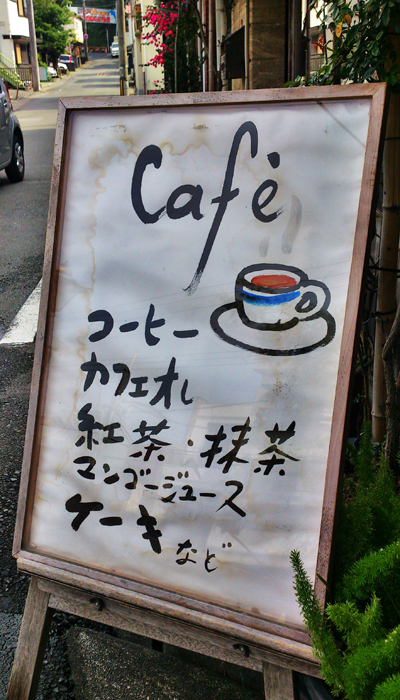 Cafè
コーヒー
カフェオレ
紅茶・抹茶
マンゴージュース
ケーキ
など